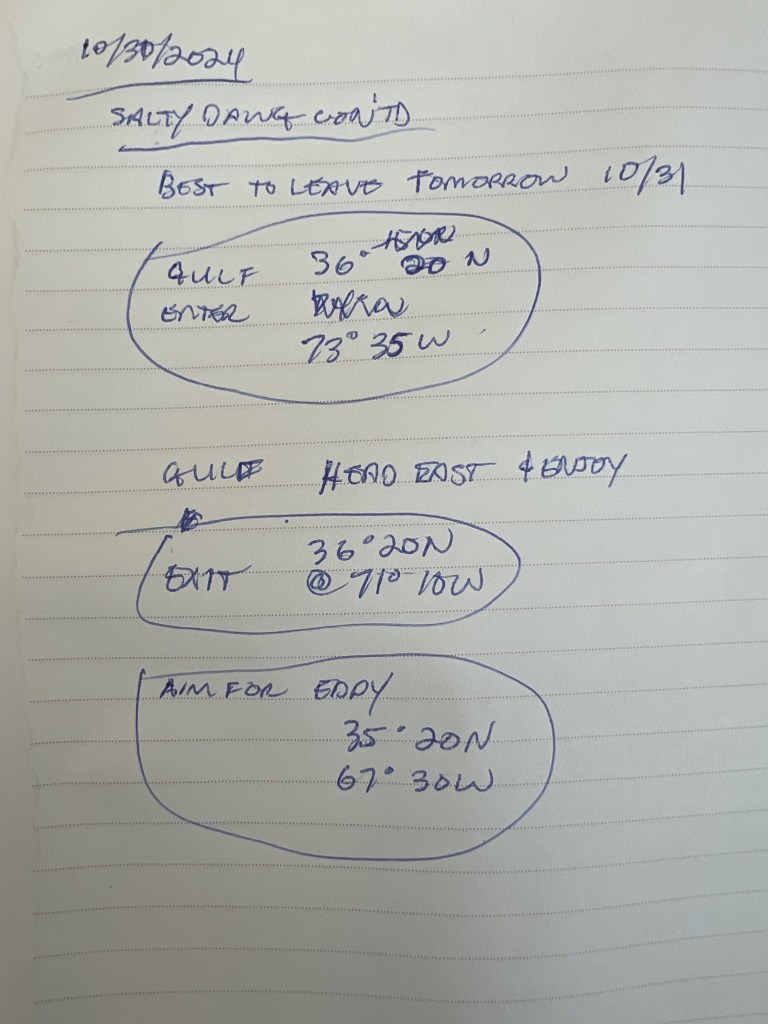 10/30/2024
SALTY DAWG CON'TD
BEST TO LEAVE TOMORROW 10/31
GULF 36° 20 N
ENTER
73° 35 W
GULF HEAD EAST & ENJOY
36° 20N
EXIT @ 71° 10W
AIM FOR EDDY
35° 20N
67° 30W